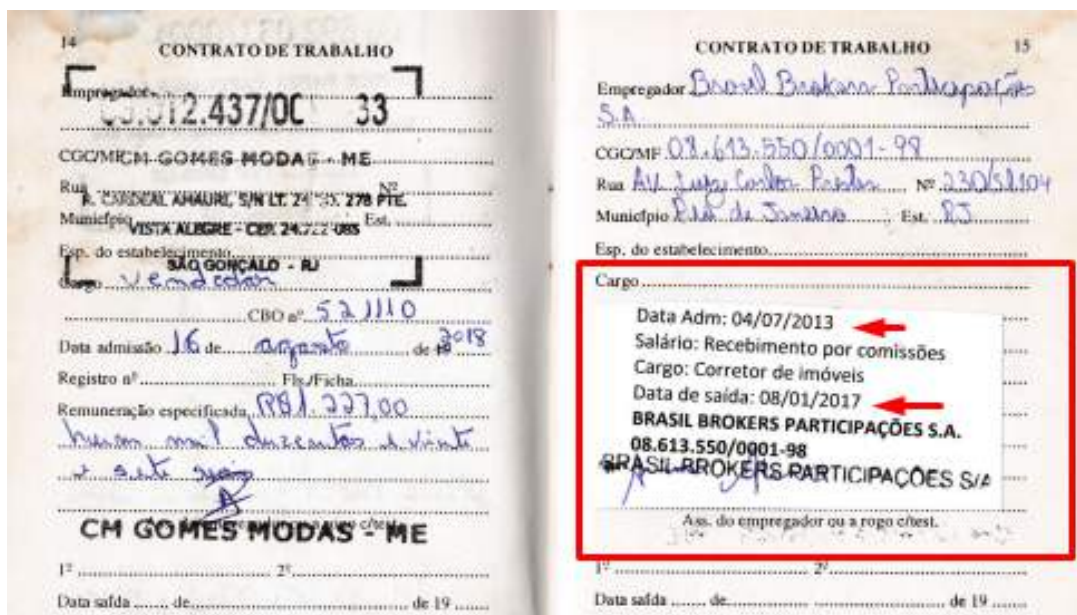 14
CONTRATO DE TRABALHO
Empregador
.012.437/00 33
CGC/MF CM GOMES MODAS - ME
Rua Nº
R. CARDEAL AMAURI, S/N LT. 278 PTE.
Município Est.
VISTA ALEGRE - CEP.
Esp. do estabelecimento
SÃO GONÇALO - RJ
Cargo Vendedor
CBO nº 521110
Data admissão 16 de agosto de 19 2018
Registro nº Fls./Ficha
Remuneração especificada R$1.227,00
mil duzentos e vinte
e sete
CM GOMES MODAS - ME
1º 2º
Data saída de de 19
CONTRATO DE TRABALHO 15
Empregador Brasil Brokers Participações
S.A
CGC/MF 08.613.550/0001-98
Rua AV. Luiz Carlos Prestes Nº 230/SL104
Município Rio de Janeiro Est. RJ
Esp. do estabelecimento
Cargo
Data Adm: 04/07/2013
Salário: Recebimento por comissões
Cargo: Corretor de imóveis
Data de saída: 08/01/2017
BRASIL BROKERS PARTICIPAÇÕES S.A.
08.613.550/0001-98
BRASIL BROKERS PARTICIPAÇÕES S/A
Ass. do empregador ou a rogo c/test.
1º 2º
Data saída de de 19